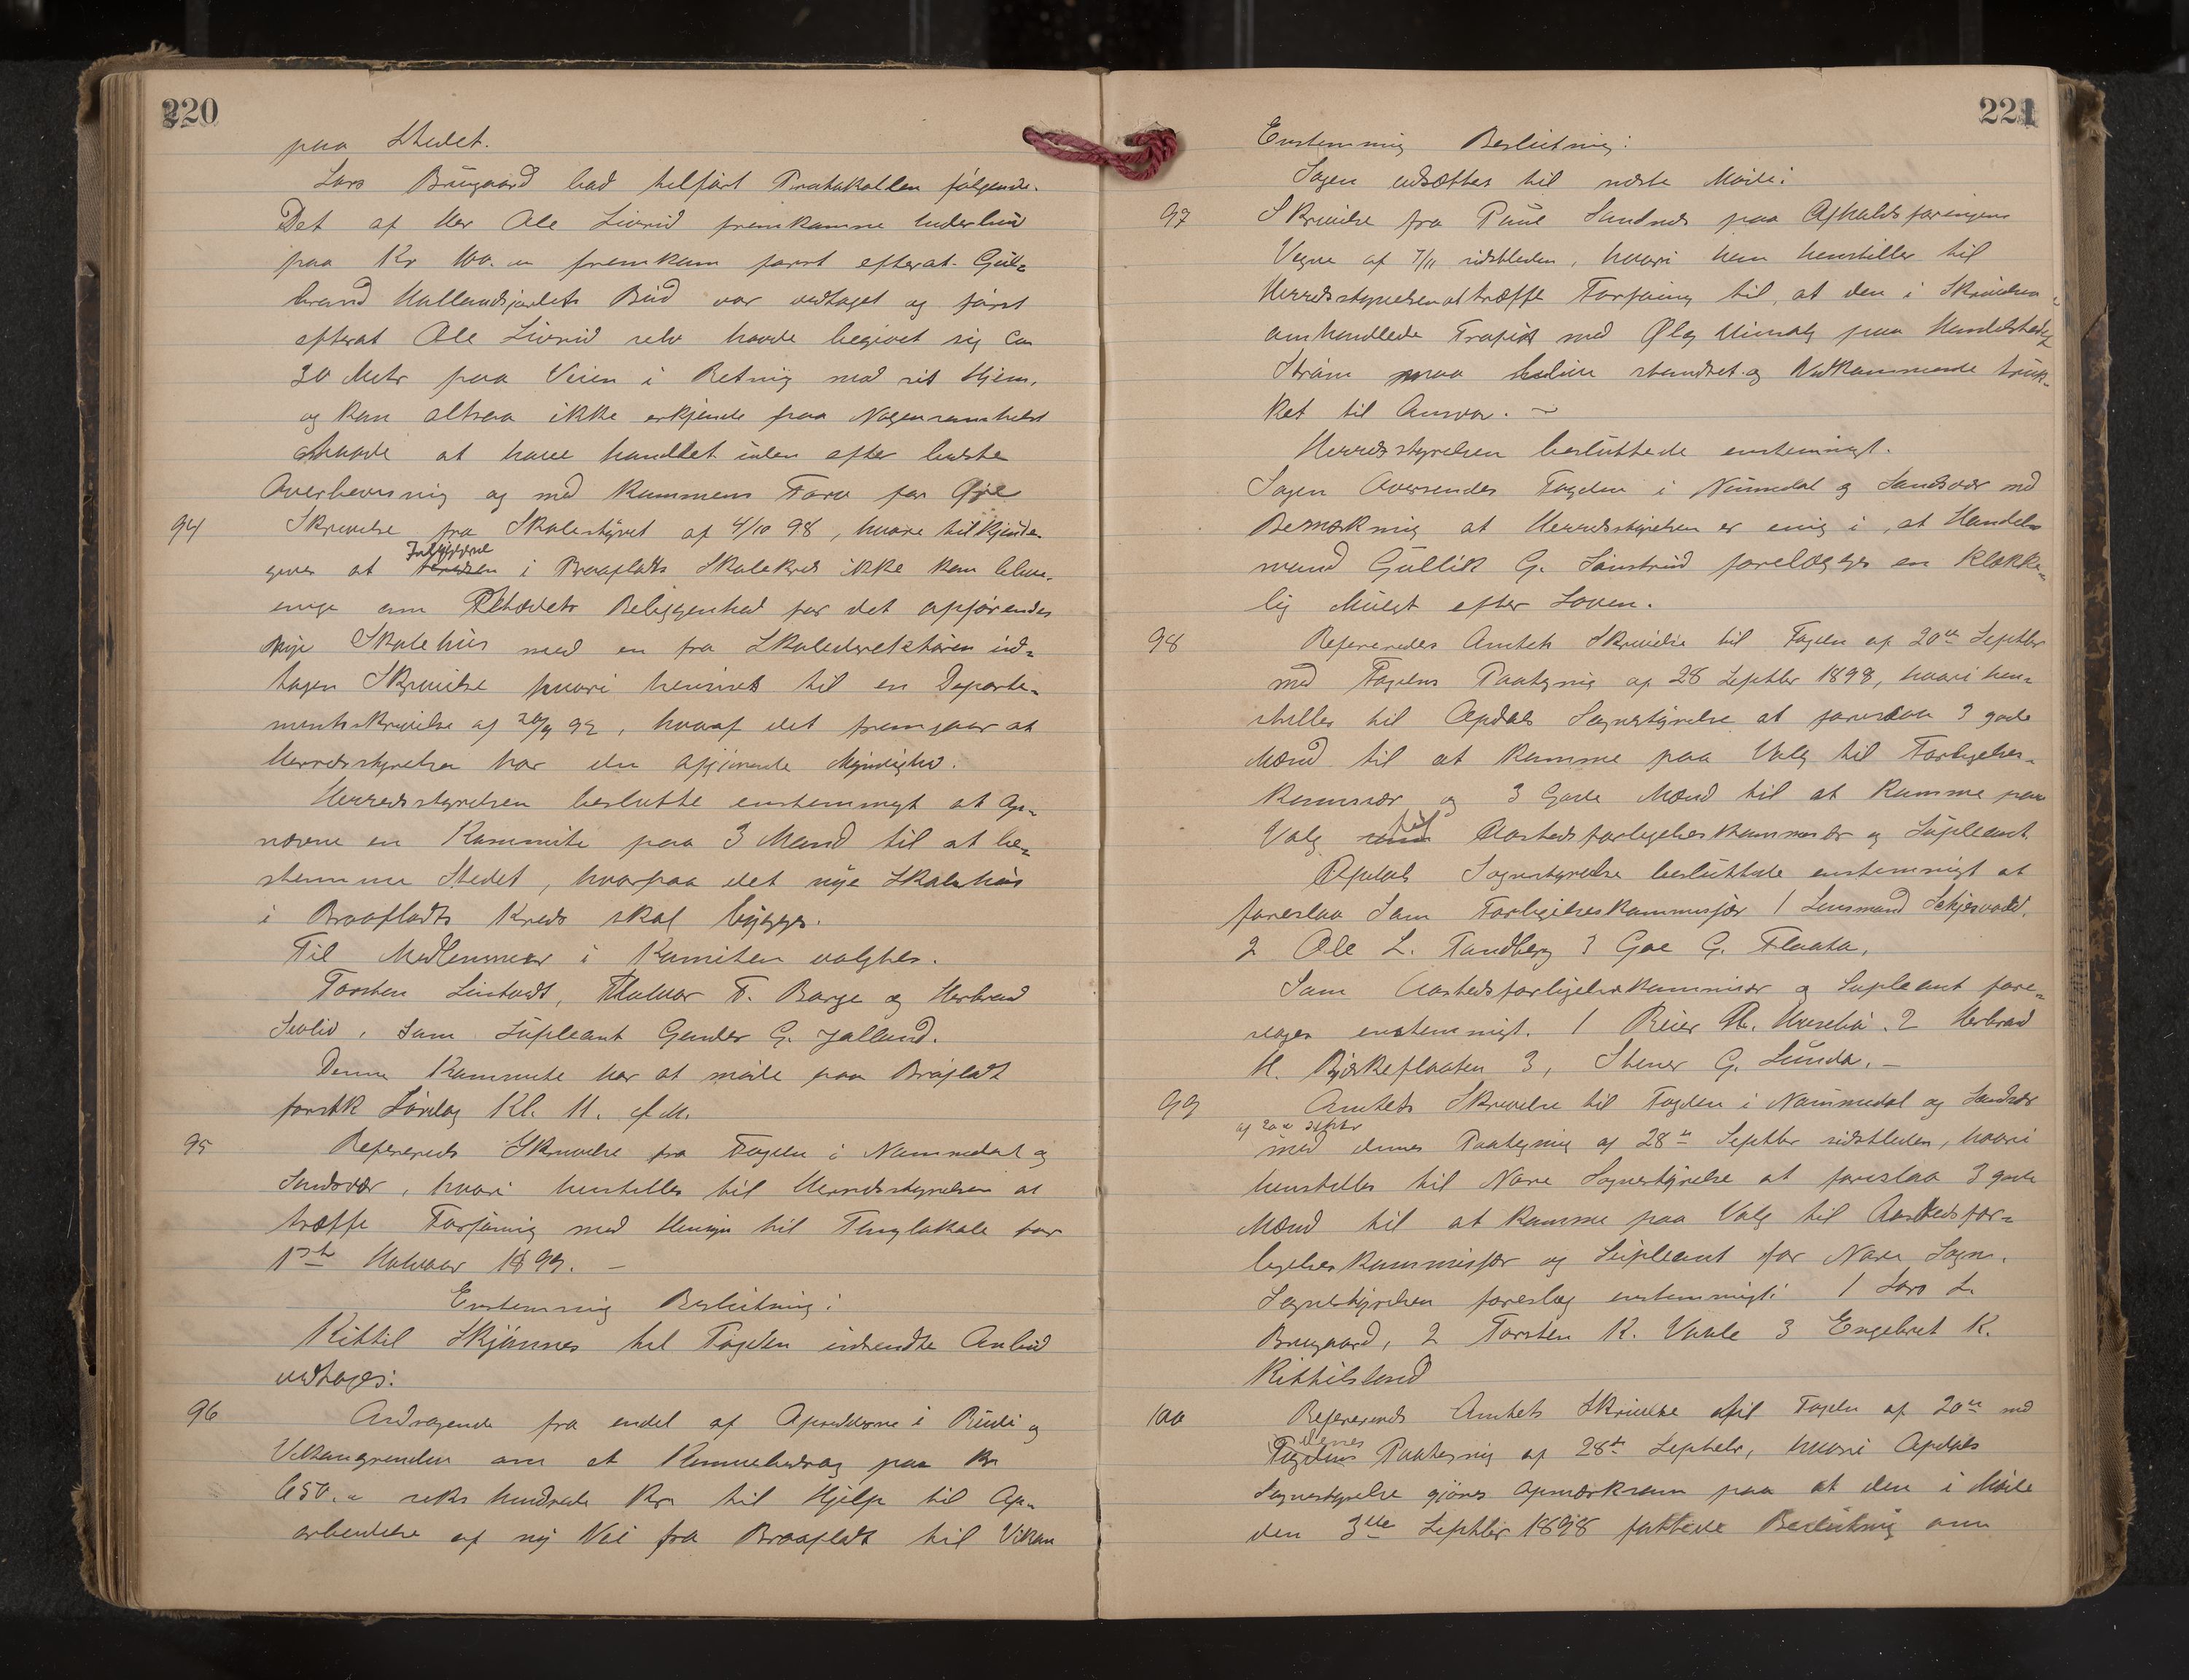 220
paa Stedet.
Lars Brugaard bad tilført Protokollen følgende.
Det af Her Ole Liverud fremkomne Underbud
paa Kr 100.00 fremkom først efterat Gul=
brand Hallandsjordets Bud var vedtaget og først
efterat Ole Liverud selv havde begivet sig Ca
30 Metr paa Veien i Retning mod sit Hjem,
og kan altsaa ikke erkjende paa Nogensomhelst
Maade at have handlet uden efter bedste
Overbevisning og med Kommunens Tarv for Øie
94 Skrivelse fra Skolestyret af 4/10 98, hvori tilkjende
gives at Indvaanerne i Braafladts Skolekreds ikke kan blive
enige om Stædets Beliggenhed for det opførendes
nye Skolehus med en fra Skoledirektøren ind=
tagen Skrivelse hvori henvises til en Departe=
mentsskrivelse af 20/9 92, hvoraf det fremgaar at
Herredsstyrelsen har den afgjørende Myndighed.
Herredsstyrelsen besluttede enstemmigt at op=
nævne en Kommite paa 3 Mand til at be=
stemme Stedet, hvorpaa det nye Skolehus
i Braafladts Kreds skal bygges.
Til Medlemmer i Komiteen valgtes.
Torsten Liustadt, Halvor T. Barge og Herbrand
Seolid, som Supleant Gunder G. Jalland.
Denne Kommite har at møde paa Braafladt
førstk Lørdag Kl. 11. f.M.
95 Refereredes Skrivelse fra Fogden i Nummedal og
Sandsvær, hvori henstilles til Herredsstyrelsen at
træffe Forføining med Hensyn til Tinglokale for
1ste Halvaar 1899. –
Enstemmig Beslutning:
Kittil Skjønnes til Fogden indsendte Anbud
vedtages:
96 Andragende fra endel af Opsidderne i Rudi og
Vikangrenden om et Kommunebidrag paa Kr
650.00 seks hundrede Kr til Hjelp til Op=
arbeidelse af ny Vei fra Braafladt til Vikan
221
Enstemmig Beslutning:
Sagen udsættes til neste Møde:
97 Skrivelse fra Paul Sandnes paa Afholdsforeningens
Vegne af 7/11 sidstleden, hvori han henstiller til
Herredsstyrelsen at træffe Forføining til, at den i Skrivelsen
omhandlede Trafik med Ølog Vinsalg paa Handelstedet
Strøm maa blive standset og Vedkommende truk=
ket til Ansvar. –
Herredsstyrelsen besluttede enstemmigt.
Sagen Oversendes Fogden i Nummedal og Sandsvær med
Bemærkning at Herredsstyrelsen er enig i, at Handels
mand Gullik G. Sønstrud forelægges en klække=
lig Mulgt efter Loven.
98 Refereredes Amtets Skrivelse til Fogden af 20de Septbr
med Fogdens Paategning af 28 Septbr 1898, hvori hen=
stilles til Opdals Sognestyrelse at foreslaa 3 gode
Mænd til at komme paa Valg til Forligelses=
kommisær og 3 Gode Mænd til at komme paa
Valg til Aastedsforligelseskommisær og Supleant.
Opdals Sognestyrelse besluttede enstemmigt at
foreslaa Som Forligelseskommisjær 1 Lensmand Schjesvold.
2 Ole L. Tandberg 3 Goe G. Flaata.
Som Aastedsforligelseskommisær og Supleant fore=
sloges enstemmigt. 1 Reier Th. 2 Herbrand
H. Bjørkeflaaten 3, Stener G. Lunda. –
99 Amtets Skrivelse til Fogden i Nummedal og Sandsvær
af 20de Septbr
med dennes Paategning af 28de Septbr sidstleden, hvori
henstilles til Nore Sognestyrelse at foreslaa 3 gode
Mænd til at komme paa Valg til Aastedsfor=
ligelseskommisjær og Supleant for Nore Sogn.
Sognestyrelsen foreslog enstemmigt: 1 Lars L.
Brugaard, 2 Torsten K. Vaale 3 Engebret K.
Kittilsland
100 Refereredes Amtets Skrivelse til Fogden af 20de med
dennes Paategning af 28de Septebr, hvori Opdals
Sognestyrelse gjøres opmærksom paa at den i Møde
den 3die Septbr 1898 fattede Beslutning om